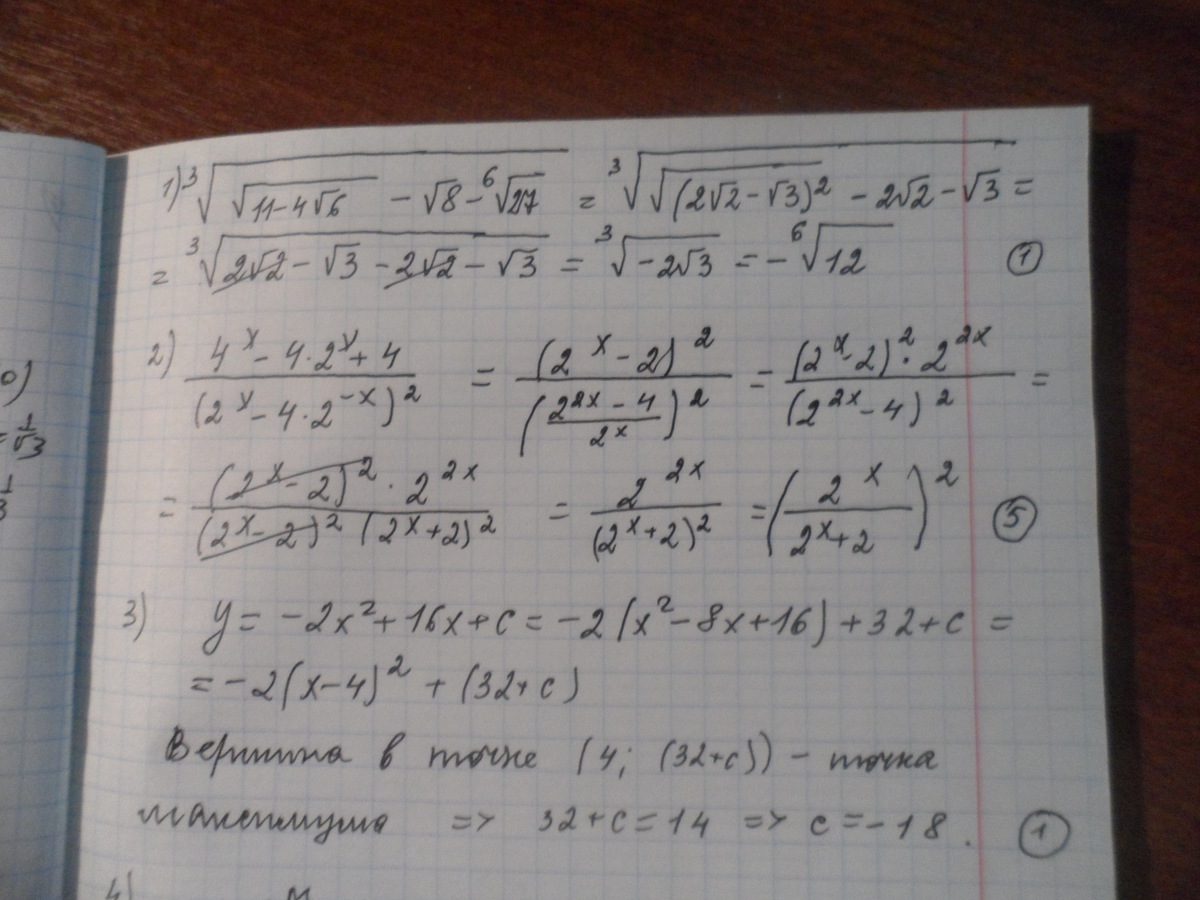 1) ∛(√(11-4√6) - √8 - ⁶√27) = ∛(√((2√2-√3)²) - 2√2 - √3) =
= ∛(2√2 - √3 - 2√2 - √3) = ∛(-2√3) = -⁶√12 ①
2) (4^x - 4·2^x + 4)/(2^x - 4·2^(-x))² = (2^x - 2)²/((2^(2x) - 4)/2^x)² = (2^x-2)²·2^(2x)/(2^(2x)-4)² =
= (2^x-2)²·2^(2x)/((2^x-2)²(2^x+2)²) = 2^(2x)/(2^x+2)² = (2^x/(2^x+2))² ⑤
3) y = -2x²+16x+c = -2(x²-8x+16)+32+c =
= -2(x-4)² + (32+c)
Вершина в точке (4; (32+c)) - точка
максимума => 32+c=14 => c=-18. ①
4)
0)
= 1/√3